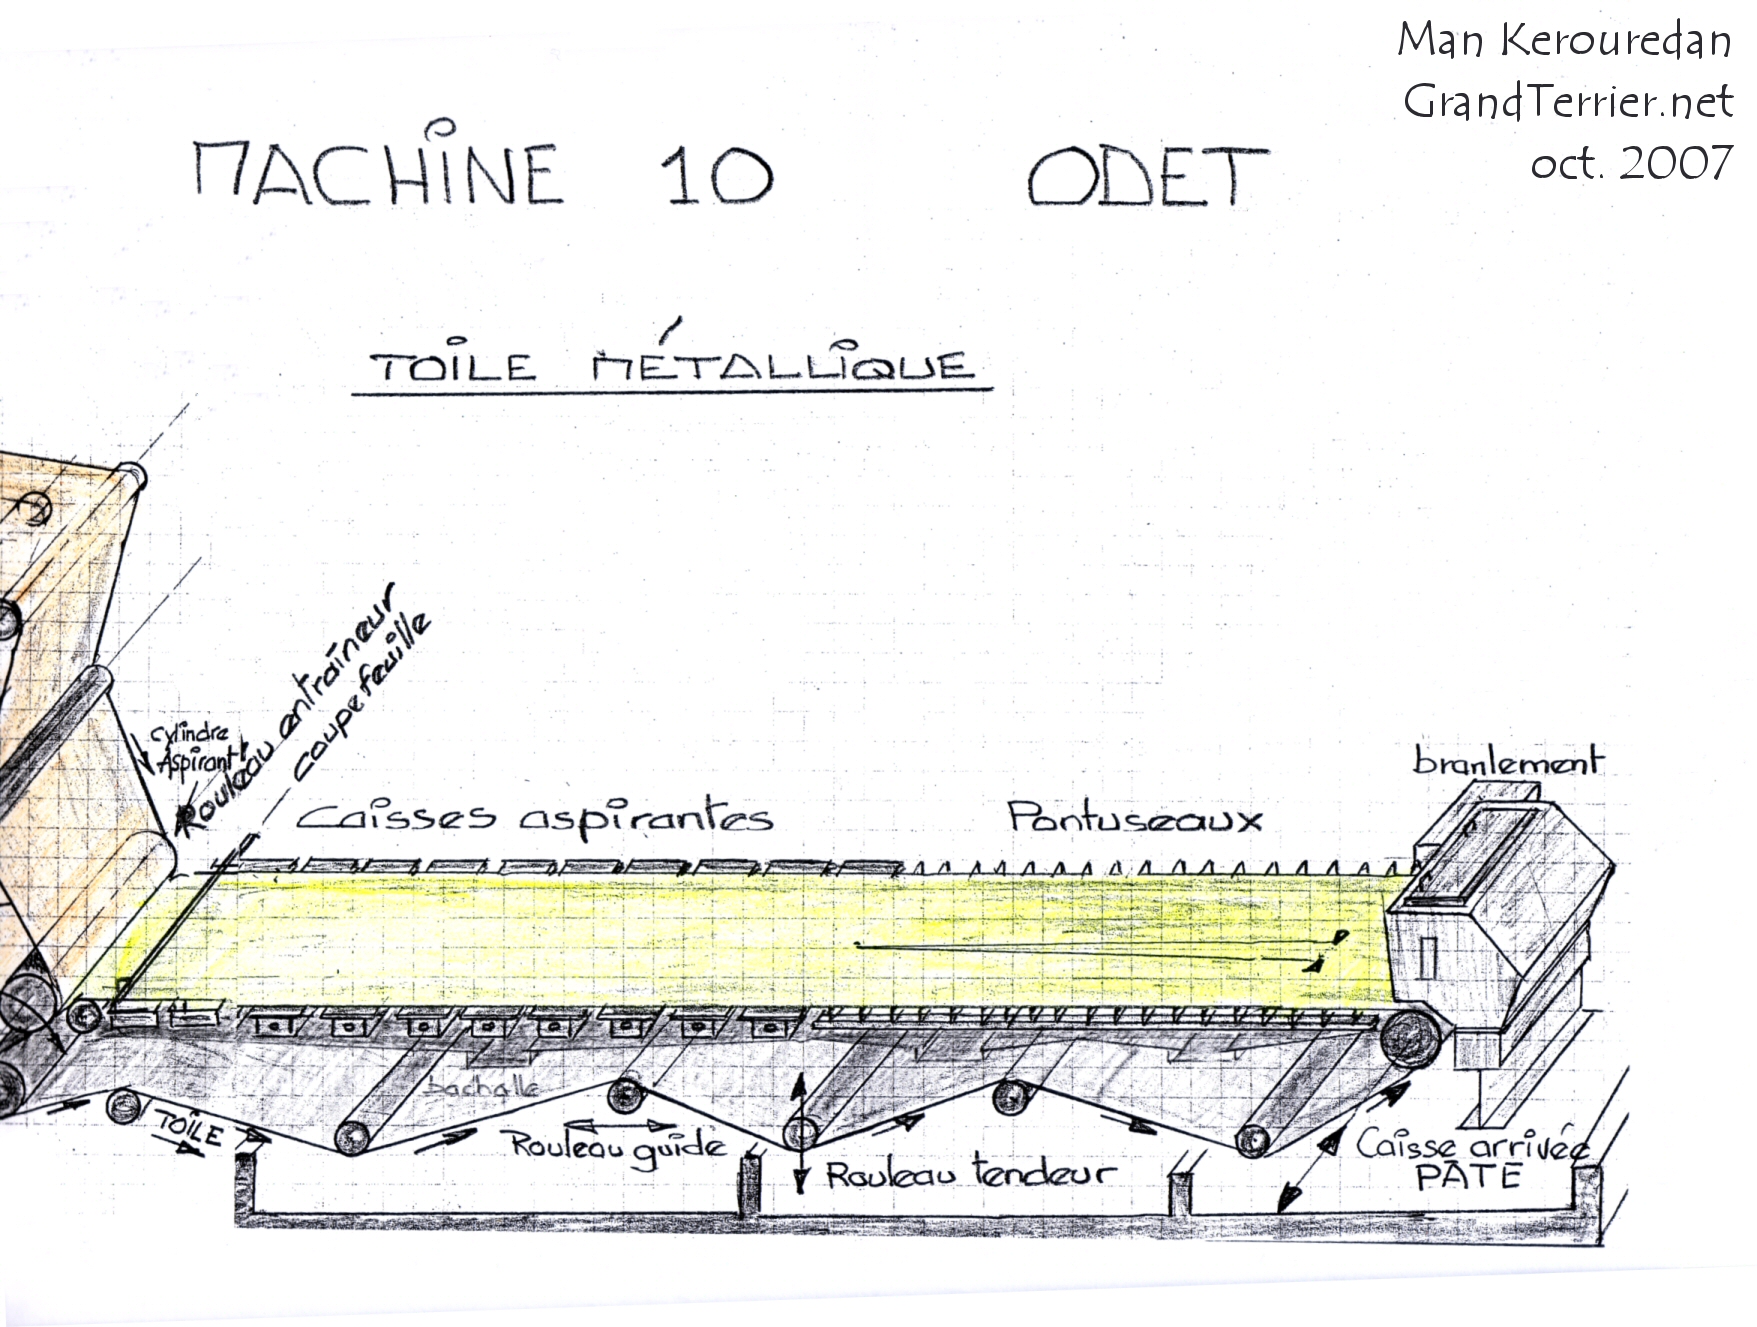 Man Kerouredan
GrandTerrier.net
oct. 2007
MACHINE 10 ODET
TOILE MÉTALLIQUE
Cylindre
Aspirant
Rouleau entraîneur
coupe feuille
Caisses aspirantes
Pontuseaux
branlement
bachalle
TOILE
Rouleau guide
Rouleau tendeur
Caisse arrivée
PÂTE